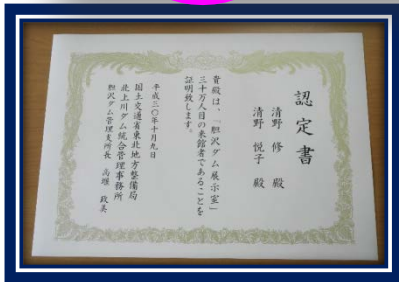 認定書
清野 修 殿
清野 悦子 殿
貴殿は、「胆沢ダム展示室」
三十万人目の来館者であることを
証明致します。
平成三〇年十月九日
国土交通省東北地方整備局
北上川ダム統合管理事務所
胆沢ダム管理支所長 高堰 政美